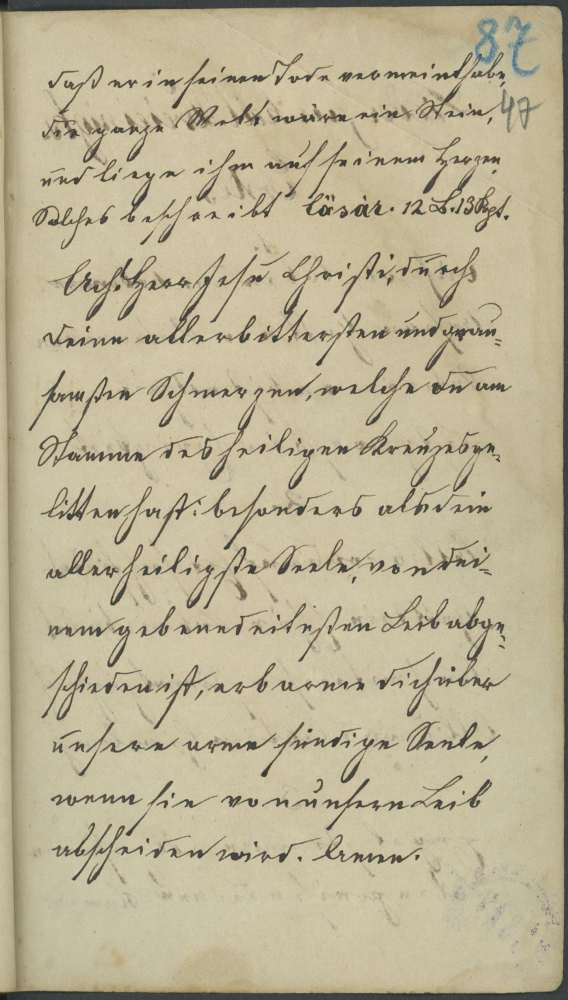 87
daß er in seinem Tode vermeint habe,
47
die ganze Welt wäre ein Stein,
und liege ihm auf seinem Herzen
Solches beschreibt Cäsar. 12 L. 13 Kpt.
Ach! Herr Jesu Christi, durch
deine allerbittersten und grau-
samsten Schmerzen, welche du am
Stamme des heiligen Kreuzes ge-
litten hast: besonders als dein
allerheiligste Seele, von dei-
nem gebenedeitesten Leib abge-
schieden ist, erbarme dich über
unsere arme sündige Seele,
wenn sie von unsern Leib
abscheiden wird. Amen.